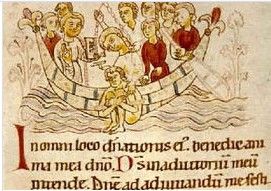 In omni loco dn̄ationis ei᾽. benedic ani
ma mea dn̄o. D̄s inadiutoriū meū
intende. Dn̄e ad adiuuandum me festi